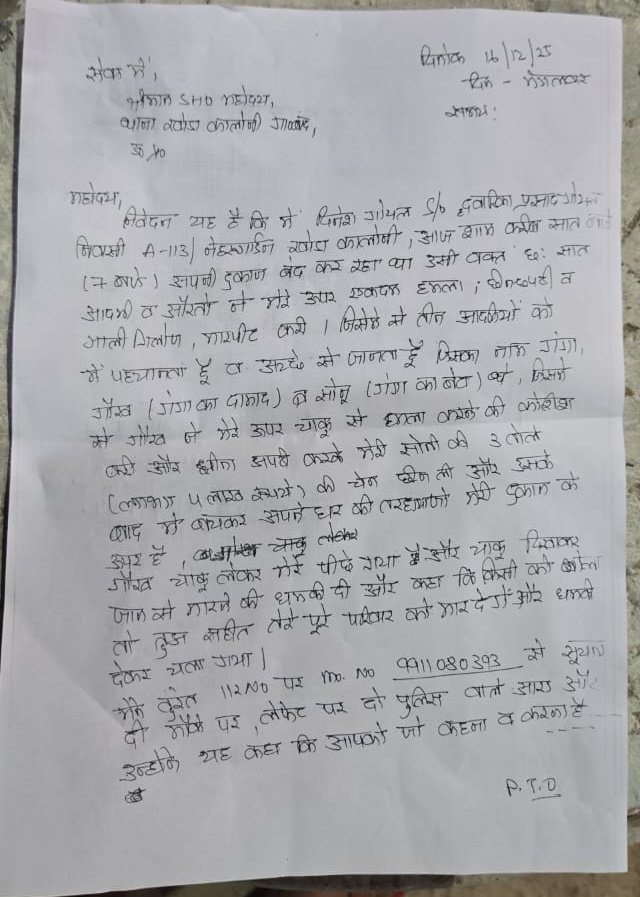 दिनांक 16/12/25
दिन - मंगलवार
सेवा में,
समय:
श्रीमान SHO महोदय,
थाना खोडा कालोनी गा०बाद,
उ० प्र०
महोदय,
निवेदन यह है कि मैं दिनेश गोयल S/o द्वारिका प्रसाद गोयल
निवासी A-113/ नेहरूगार्डन खोडा कालोनी, आज शाम करीब सात बजे
(7 बजे) अपनी दुकान बंद कर रहा था उसी वक्त छ: सात
आदमी व औरतो ने मेरे ऊपर एकदम हमला, छीनाझपटी व
गाली गिलोज, मारपीट करी। जिसमे से तीन आदमियों को
में पहचानता हूँ व अच्छे से जानता हूँ जिसका नाम गंगा,
गौरव (गंगा का दामाद) व सोनू (गंगा का बेटा) थे, जिसमे
से गौरव ने मेरे ऊपर चाकू से हमला करने की कोशिश
करी और छीना झपटी करके मेरी सोने की 3 तोले
(लगभग 4 लाख रूपये) की चेन छीन ली और उसके
बाद में बचकर अपने घर की तरफ मेरी दुकान के
ऊपर है, चाकू लेकर
गौरव चाकू लेकर मेरे पीछे गया है और चाकू दिखाकर
जान से मारने की धमकी दी और कहा कि किसी को बोला
तो तुझ सहीत तेरे पूरे परिवार को मार देगें और धमकी
देकर चला गया।
मैने तुरंत 112 No पर Mo. No 9911080393 से सूचना
दी मौके पर, लेफेट पर दो पुलिस वाले आए और
उन्होंने यह कहा कि आपको जो कहना व करना है
P.T.O